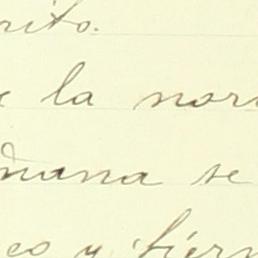 rito.
la nor
ñana se
eo y fiern